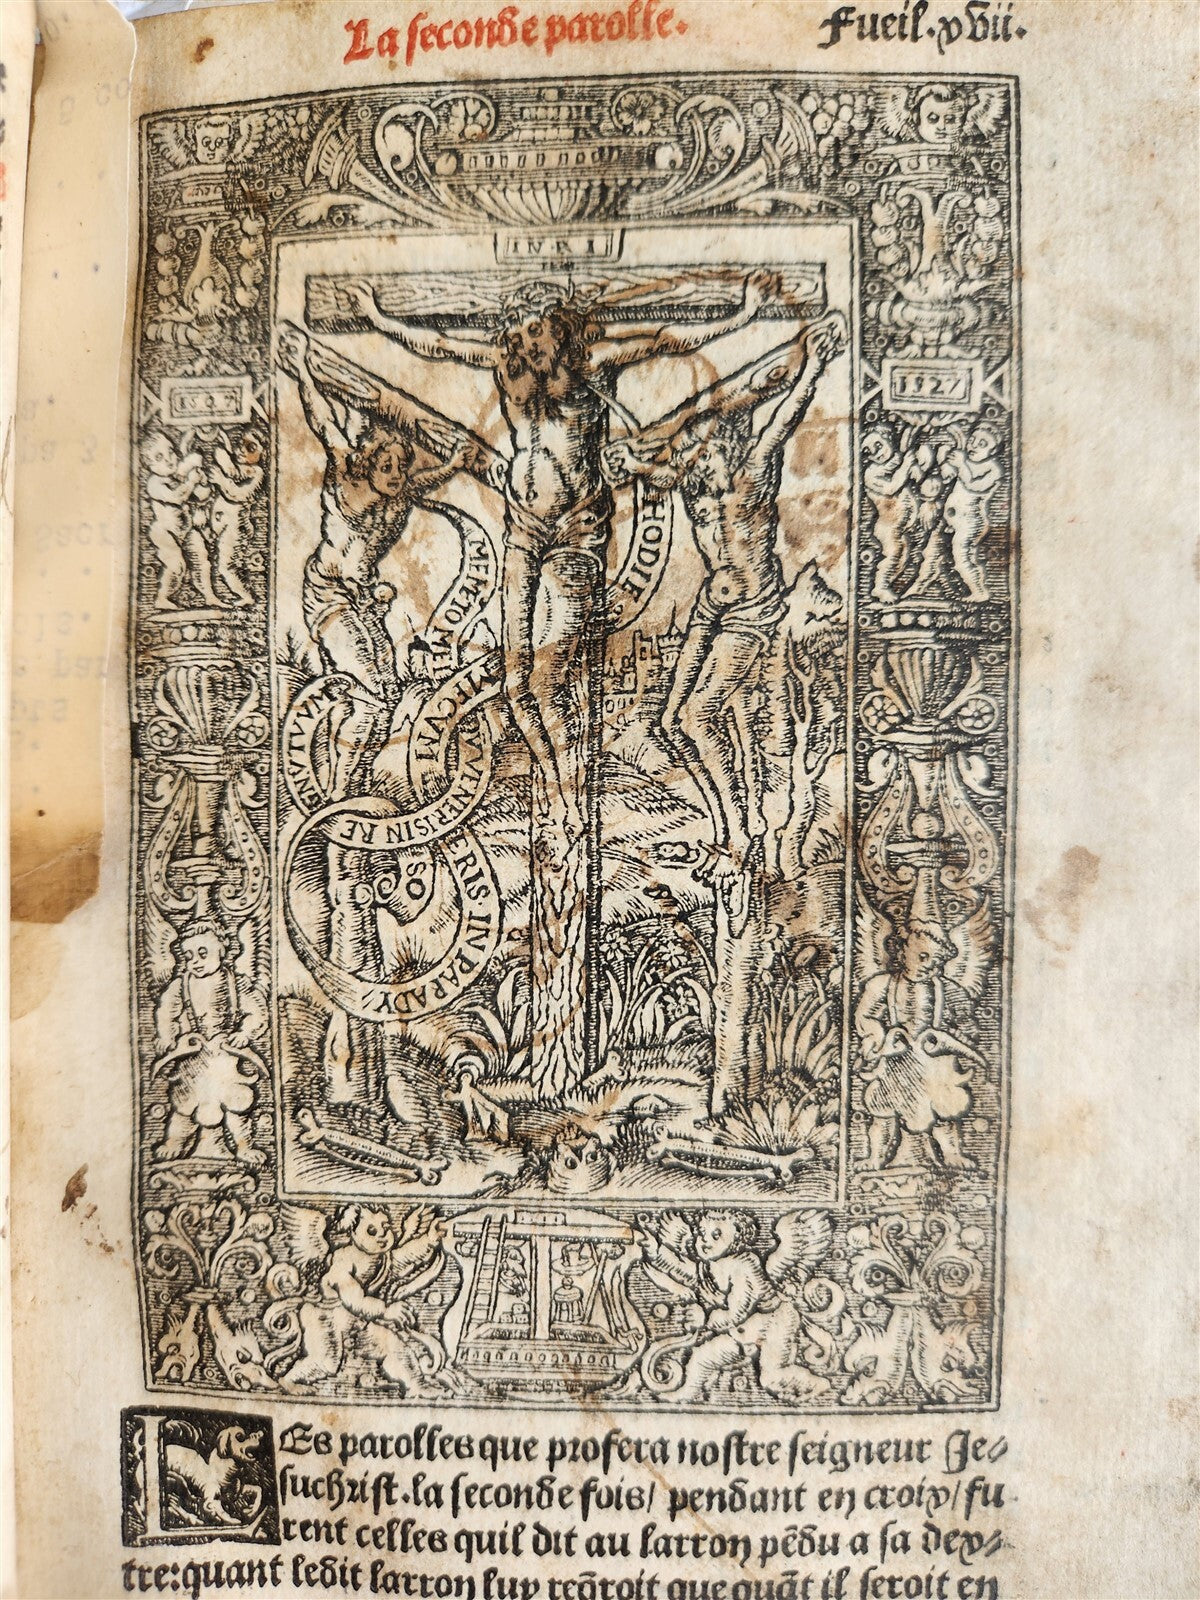 La seconde parolle.
Fueil.xvii.
INRI
1527
1527
HODIE
MEMETO MEI
MECVM
DVVENERIS IN RE
GNVTVVM
ERIS. IN PARADY/
SO
LEs parolles que profera nostre seigneur Je⸗
suchrist.la seconde fois/ pendant en croix/fu
rent celles quil dit au larron pẽdu a sa dex⸗
tre:quant ledit larron luy reqroit que quãt il seroit en